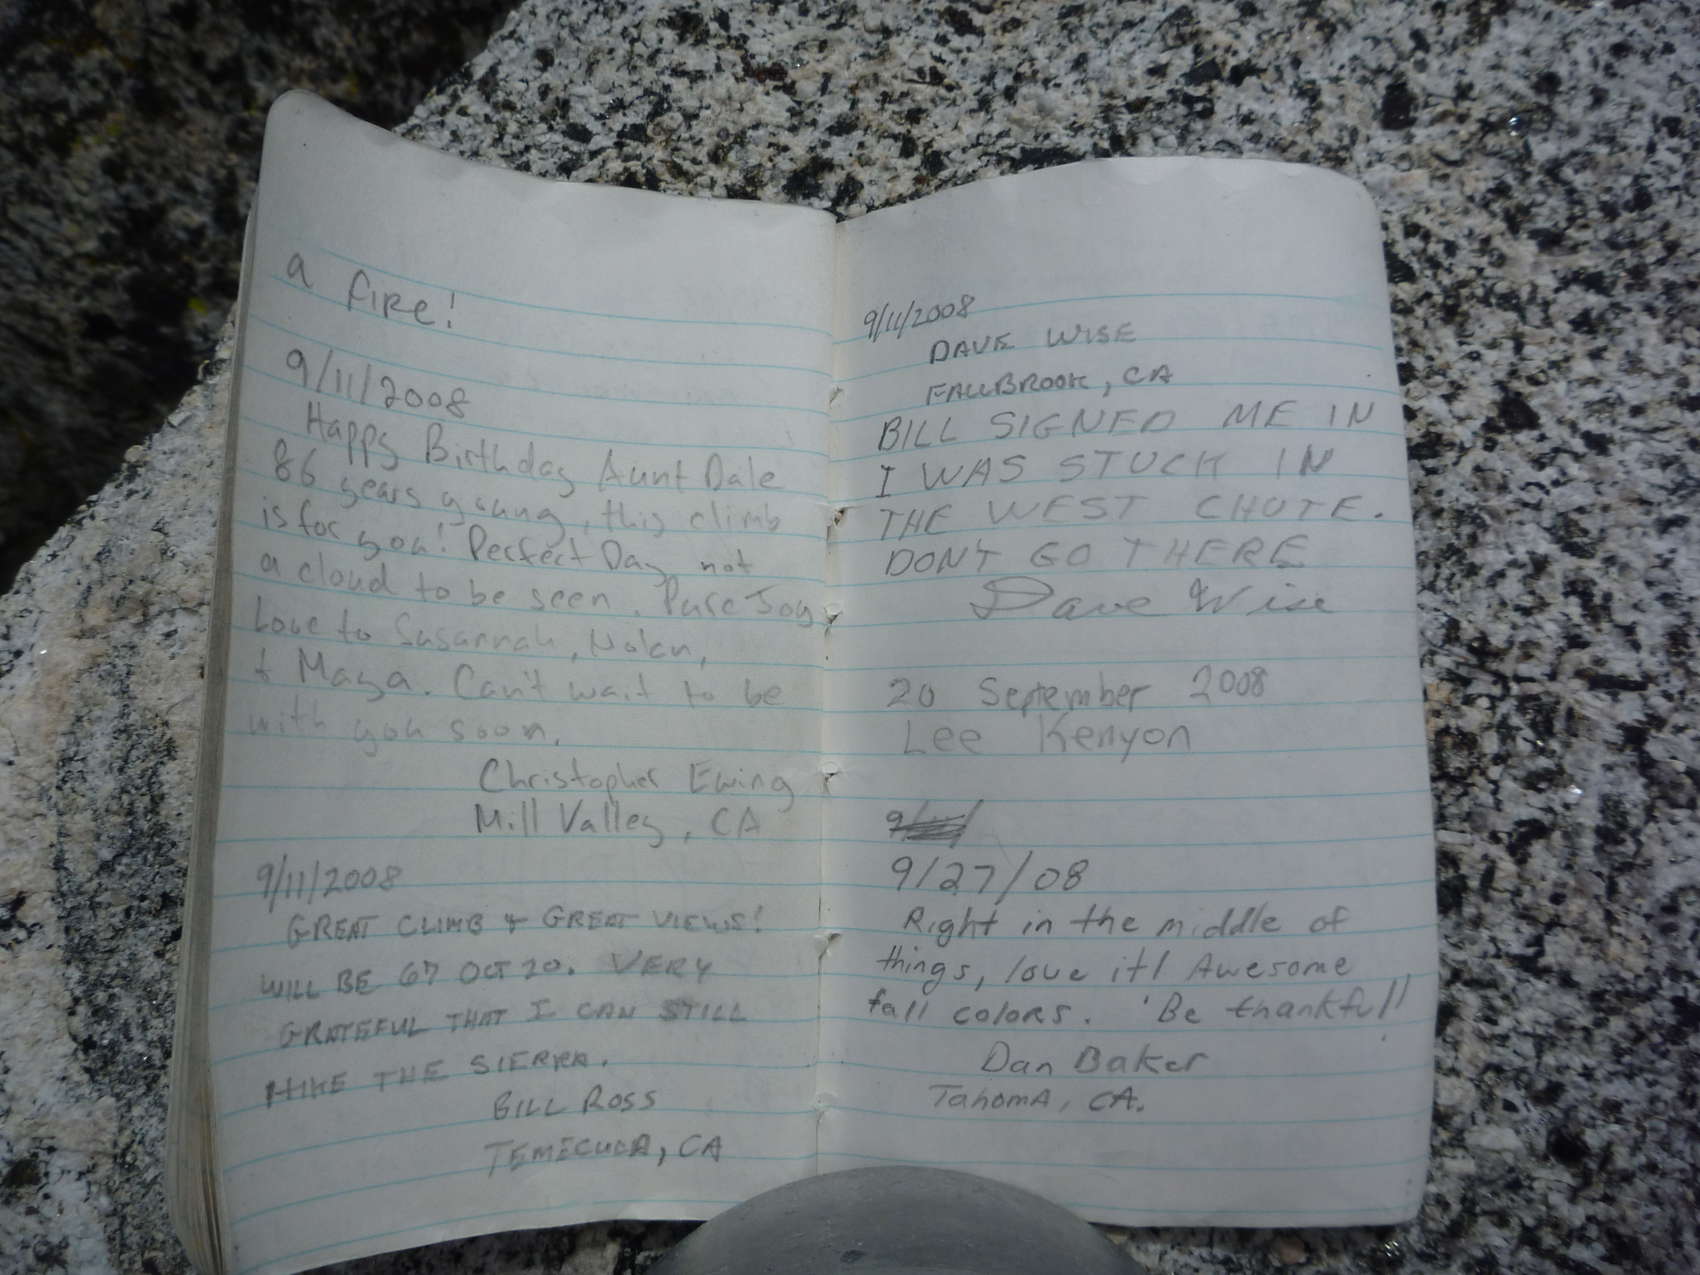 a fire!
9/11/2008
Happy Birthday Aunt Dale
86 years young, this climb
is for you! Perfect Day not
a cloud to be seen. Pure Joy
Love to Susannah, Nolan,
+ Maya. Can't wait to be
with you soon.
Christopher Ewing
Mill Valley, CA
9/11/2008
GREAT CLIMB & GREAT VIEWS!
WILL BE 67 OCT 20. VERY
GRATEFUL THAT I CAN STILL
HIKE THE SIERRA.
BILL ROSS
TEMECULA, CA
9/11/2008
DAVE WISE
FALLBROOK, CA
BILL SIGNED ME IN
I WAS STUCK IN
THE WEST CHUTE.
DON'T GO THERE
Dave Wise
20 September 2008
Lee Kenyon
9/27/08
Right in the middle of
things, love it! Awesome
fall colors. 'Be thankful!
Dan Baker
Tahoma, CA.